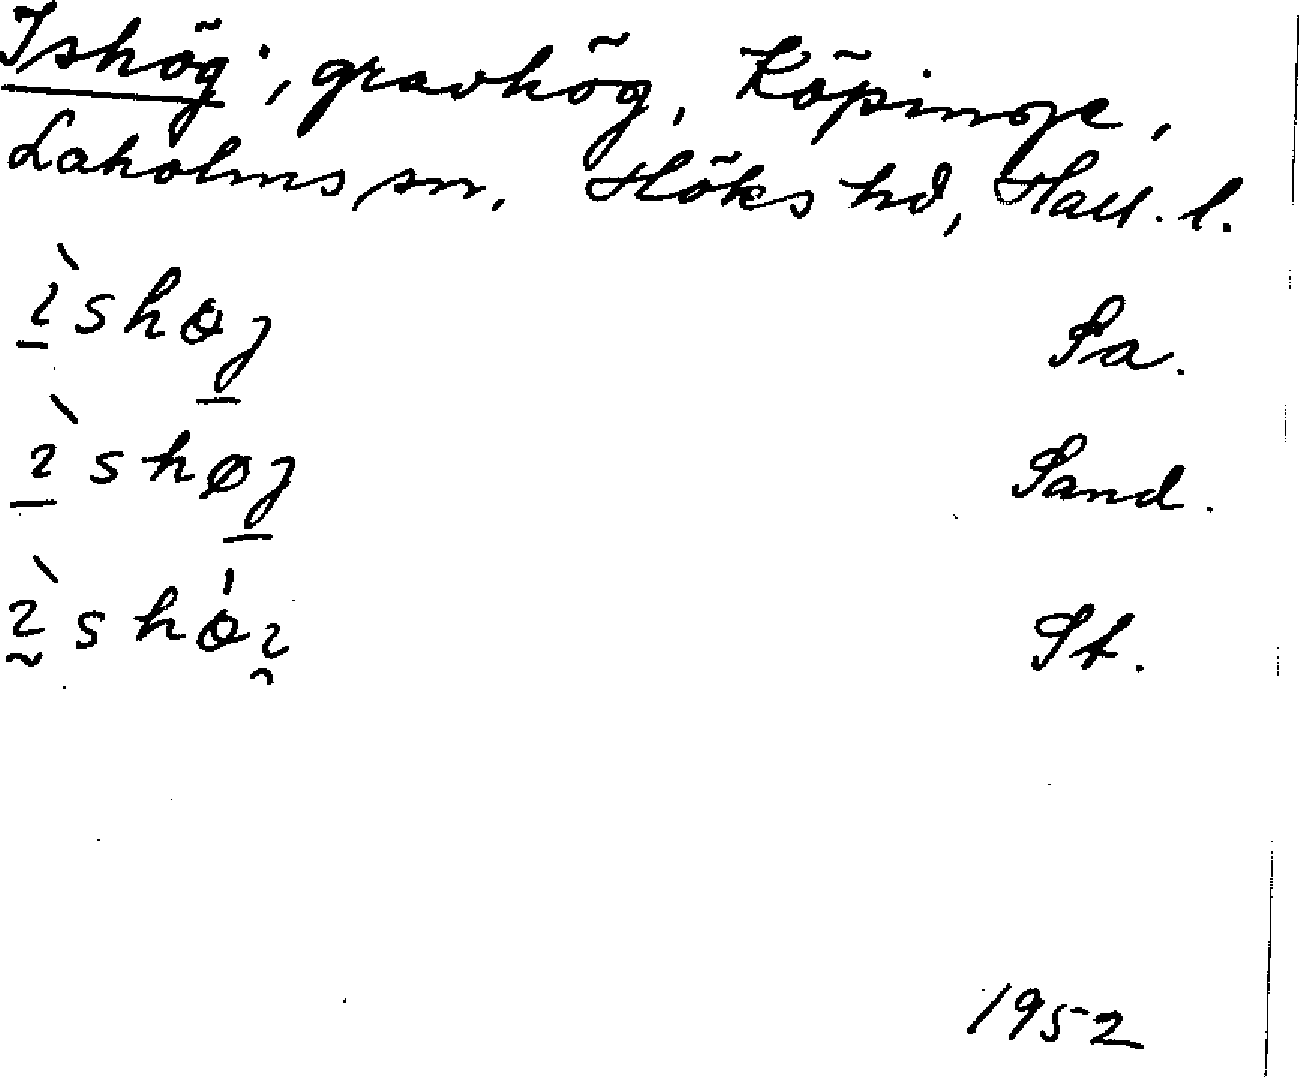 Ishög, gravhög, Köpinge,
Laholms sn. Höks hd, Hall. l.
ìshøj Pa.
ìshøj Sand.
ìshói St.
1952